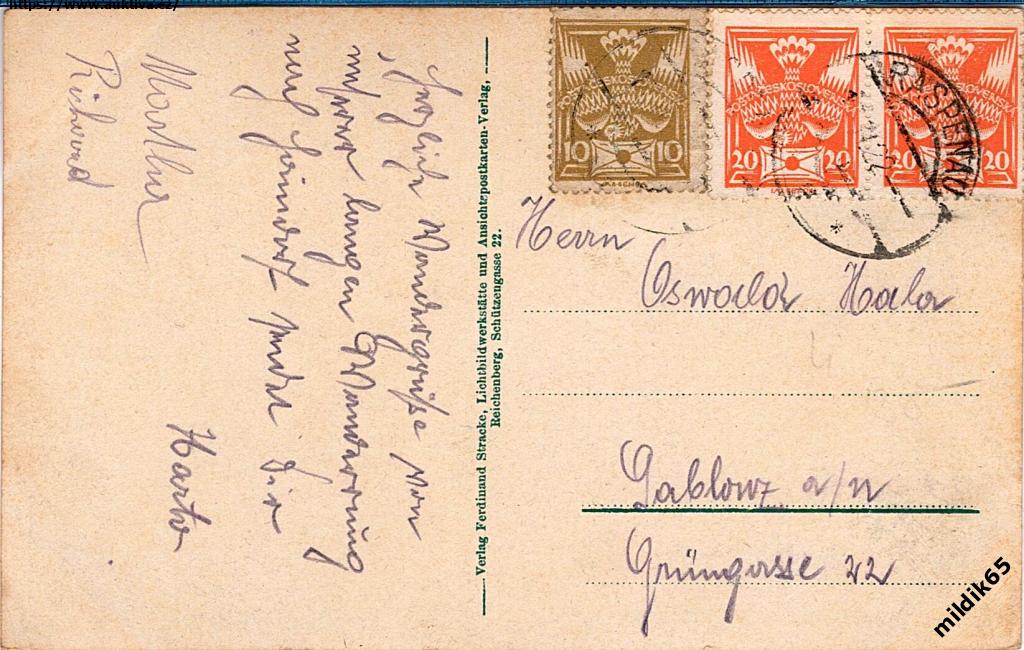 https://www.aukdive.cz/
Herzliche Wandergrüße von
unserer langen Wanderung
nach Haindorf sendet Dir
Harto
Marthur
Richard
Verlag Ferdinand Stracke, Lichtbildwerkstätte und Ansichtspostkarten-Verlag,
Reichenberg, Schützengasse 22.
POSTA ČESKOSLOVENSKÁ
10 10
POSTA ČESKOSLOVENSKÁ
20 20
POSTA ČESKOSLOVENSKÁ
20 20
RASPENAU
Herrn
Oswald Hala
Gablonz a/n
Grüngasse 22
mildik65